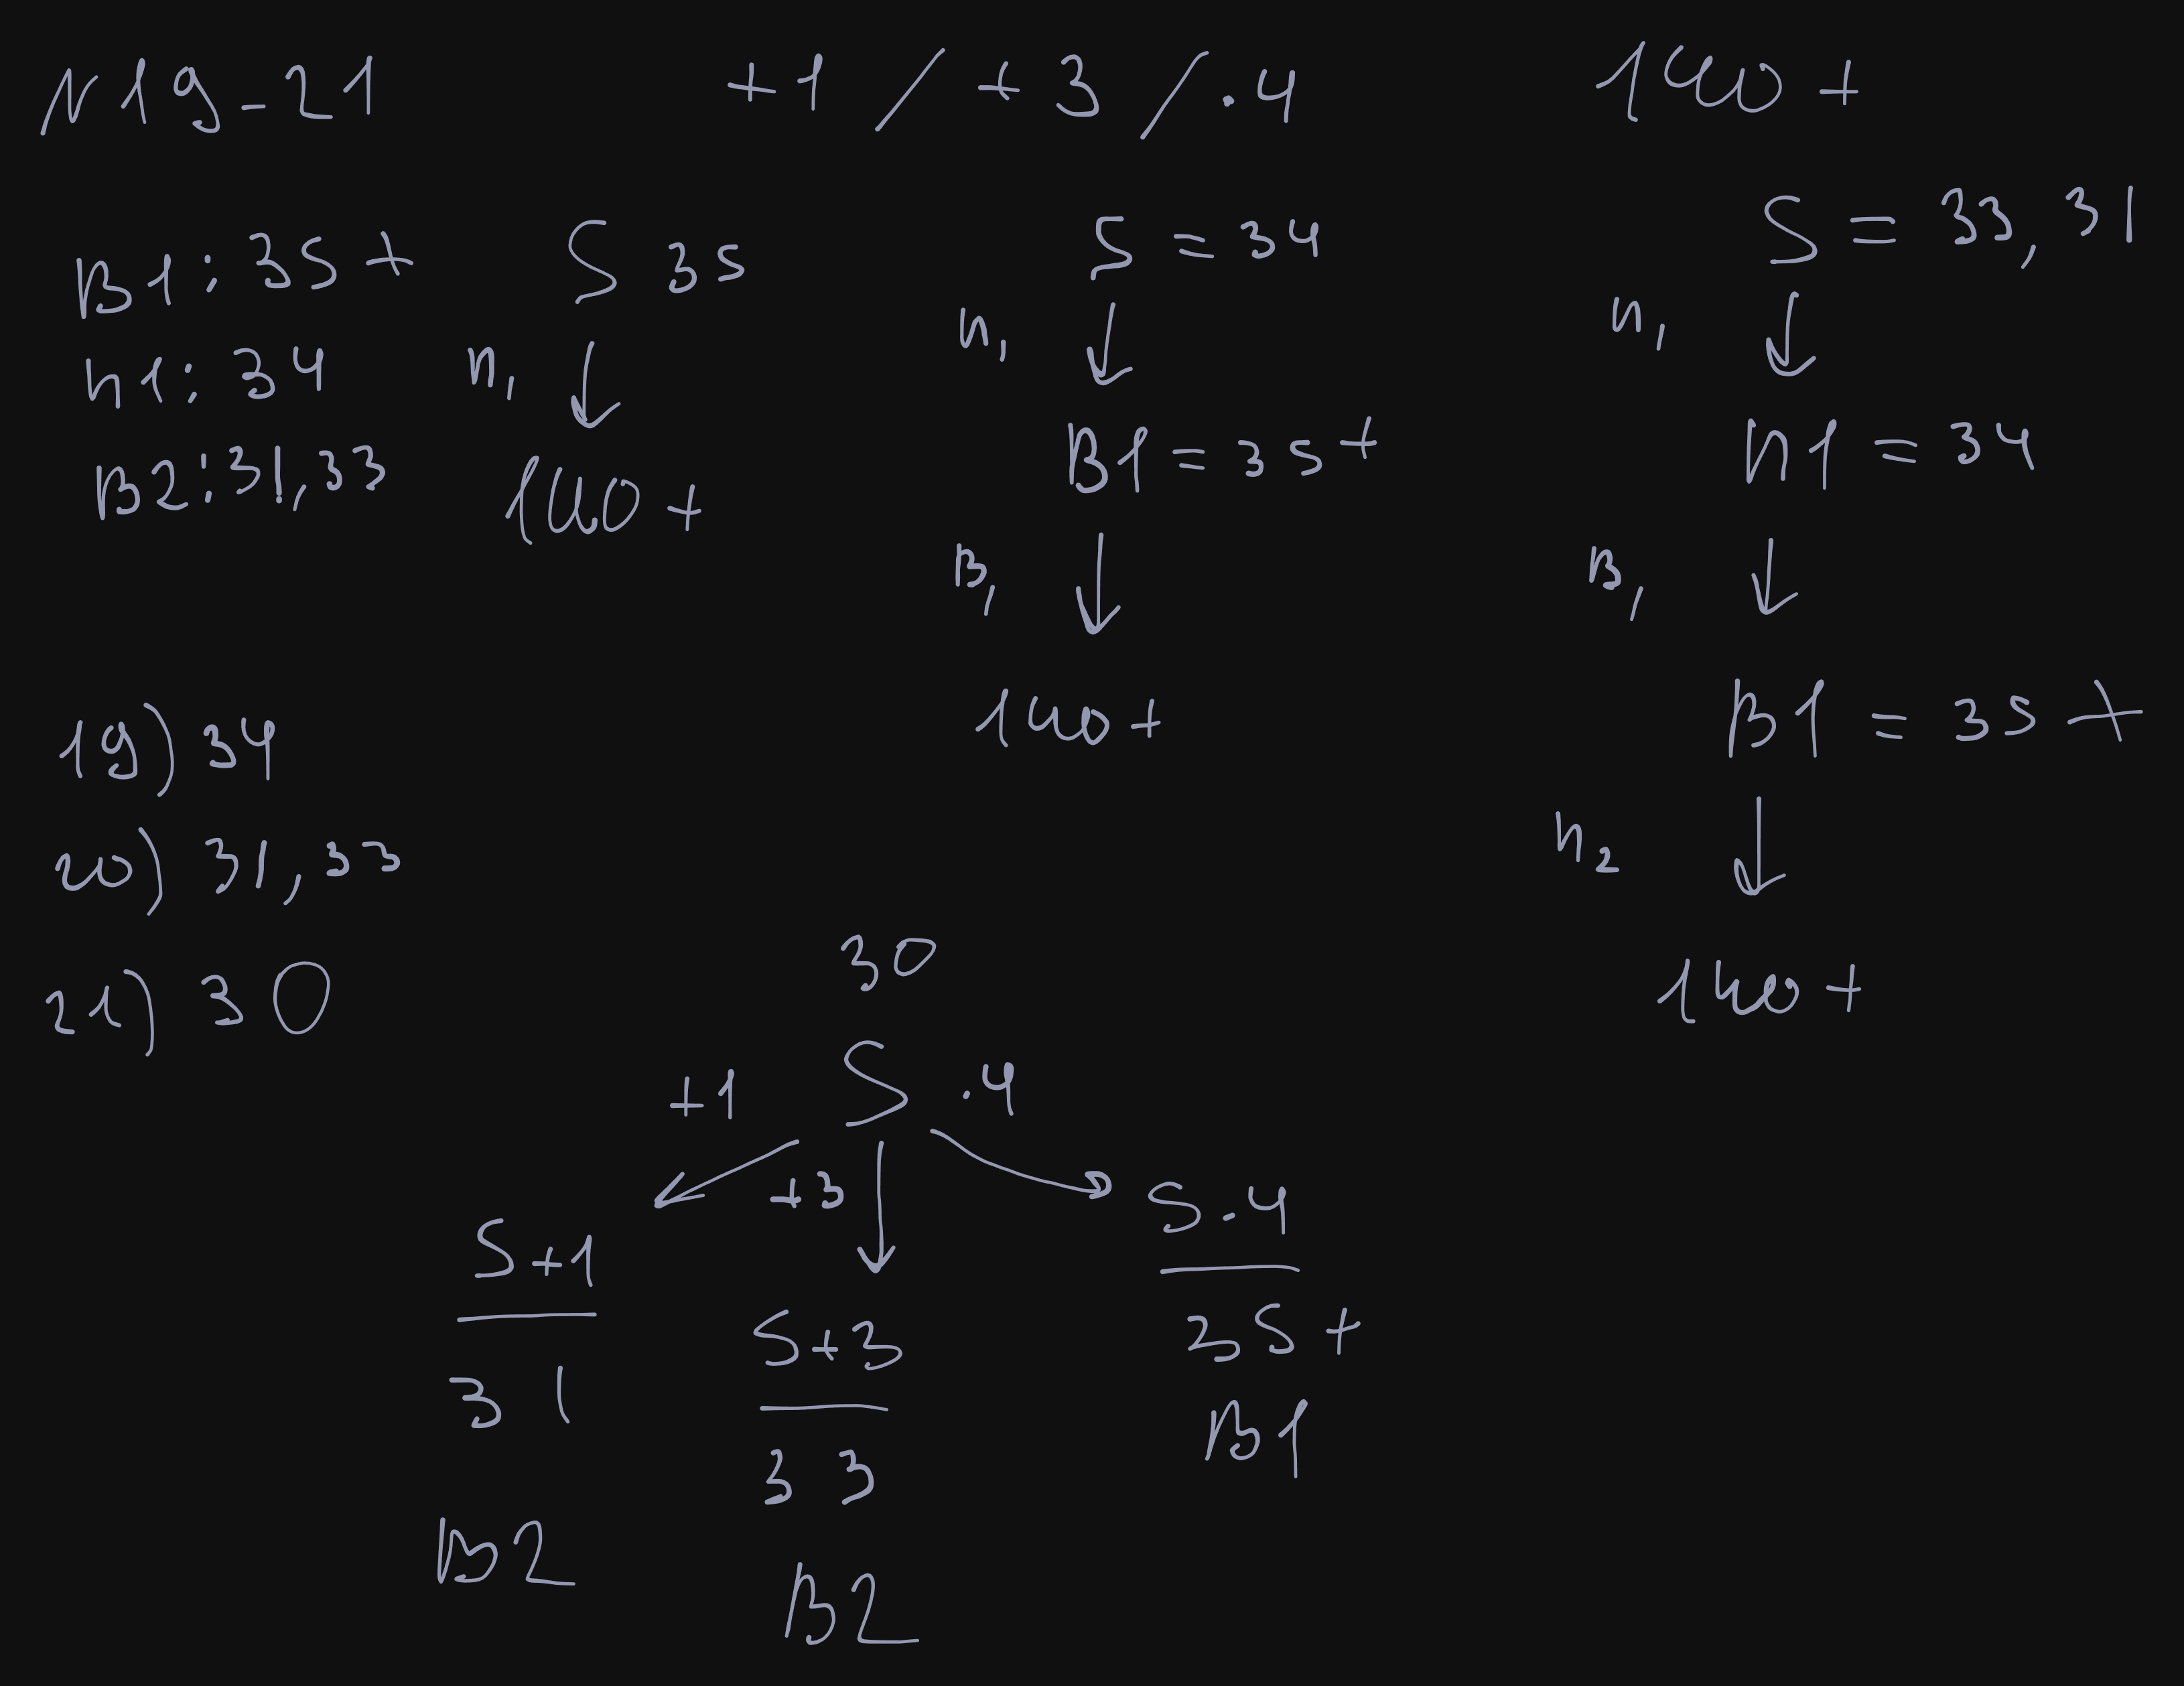 N 19 - 21 +1 / +3 / · 4 140+
B1: 35+
П1: 34
B2: 31, 33
S 35
П1
140+
S = 34
П1
B1 = 35+
B1
140+
S = 33, 31
П1
П1 = 34
B1
B1 = 35+
П2
140+
19) 34
20) 31, 33
21) 30
30
+1 S · 4
+3
S+1
31
B2
S+3
33
B2
S · 4
35+
B1